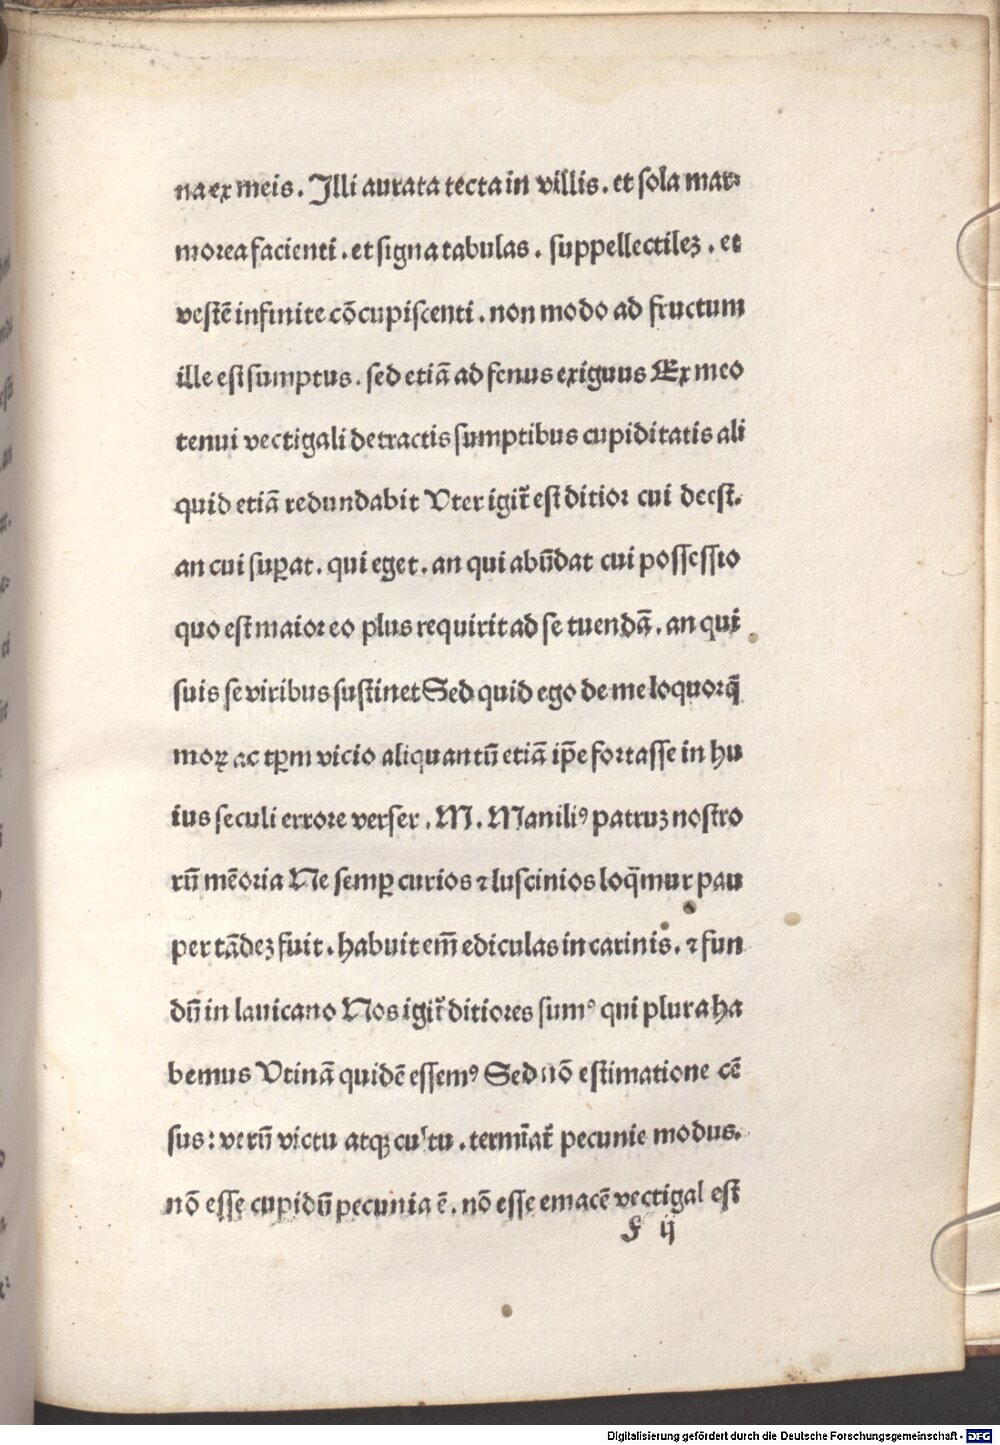 na ex meis. Illi aurata tecta in villis. et sola mar⸗
morea facienti. et signa tabulas. suppellectileꝫ. et
vestē infinite cōcupiscenti. non modo ad fructum
ille est sumptus. sed etiā ad fenus exiguus Ex meo
tenui vectigali detractis sumptibus cupiditatis ali
quid etiā redundabit Vter igit̃ est ditior cui deest.
an cui suꝑat. qui eget. an qui abūdat cui possessio
quo est maior eo plus requirit ad se tuendā. an qui
suis se viribus sustinet Sed quid ego de me loquor q̄
moꝝ ac tꝑm vicio aliquantū etiā ip̄e fortasse in hu
ius seculi errore verser. M. Maniliꝰ patruꝫ nostro
rū mēoria Ne semꝑ curios ⁊ luscinios loq̄mur pau
per tādeꝫ fuit. habuit em̄ ediculas in carinis. ⁊ fun
dū in lauicano Nos igit̃ ditiores sumꝰ qui plura ha
bemus Vtinā quidē essemꝰ Sed nō estimatione cē
sus: verū victu atqꝫ cultu. termīat̃ pecunie modus.
nō esse cupidū pecunia ē. nō esse emacē vectigal est
f ij
Digitalisierung gefördert durch die Deutsche Forschungsgemeinschaft - DFG